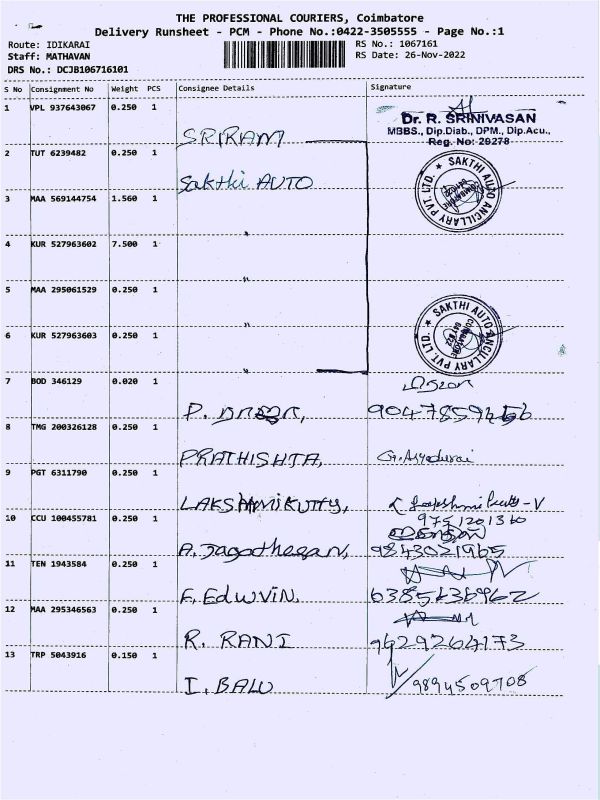 THE PROFESSIONAL COURIERS, Coimbatore
Delivery Runsheet - PCM - Phone No.:0422-3505555 - Page No.:1
Route: IDIKARAI RS No.: 1067161
Staff: MATHAVAN RS Date: 26-Nov-2022
DRS No.: DCJB106716101
S No Consignment No Weight PCS Consignee Details Signature
1 VPL 937643067 0.250 1
SRIRAM
Dr. R. SRINIVASAN
MBBS., Dip.Diab., DPM., Dip.Acu.,
Reg. No: 29278
2 TUT 6239482 0.250 1
Sakthi AUTO
SAKTHI AUTO ANCILLARY PVT. LTD.
COIMBATORE
641 022
3 MAA 569144754 1.560 1
"
4 KUR 527963602 7.500 1
"
5 MAA 295061529 0.250 1
"
SAKTHI AUTO ANCILLARY PVT. LTD.
COIMBATORE
641 022
6 KUR 527963603 0.250 1
7 BOD 346129 0.020 1
P.
8 TMG 200326128 0.250 1
PRATHISHTA,
9 PGT 6311790 0.250 1
LAKSHMIKUTTY,
9751201360
10 CCU 100455781 0.250 1
A. Jagathesan, 9843021965
11 TEN 1943584 0.250 1
F. Edwvin, 6385636962
12 MAA 295346563 0.250 1
R. RANI 9629264173
13 TRP 5043916 0.150 1
I. BALU 9894509708